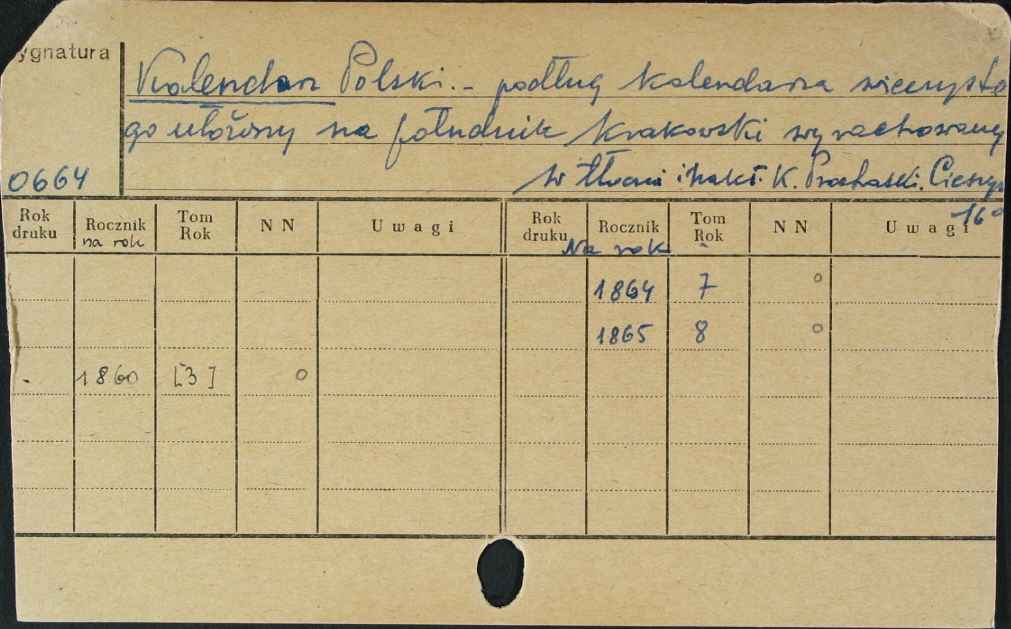 ygnatura
Kalendarz Polski. - podług kalendarza wieczyste
go ułożony na południk krakowski wyrachowany
0664
w tłoczni i nakł. K. Prochaski. Cieszyn
16°
Rok druku Rocznik Tom Rok NN Uwagi Rok druku Rocznik Tom Rok NN Uwagi
na rok Na rok
1864 7 o
1865 8 o
1860 [3] o